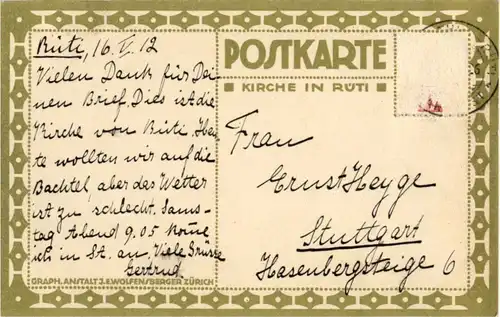 Rüti, 16. V. 12
Vielen Dank für Dei-
nen Brief. Dies ist die
Kirche von Rüti. Heu-
te wollten wir auf die
Bachtel, aber das Wetter
ist zu schlecht. Sams-
tag Abend 9.05 komme
ich in St. an. Viele Grüsse
Gertrud
GRAPH. ANSTALT J.E. WOLFENSBERGER ZÜRICH
POSTKARTE
KIRCHE IN RÜTI
Frau
Ernst Heyge
Stuttgart
Hasenbergsteige 6